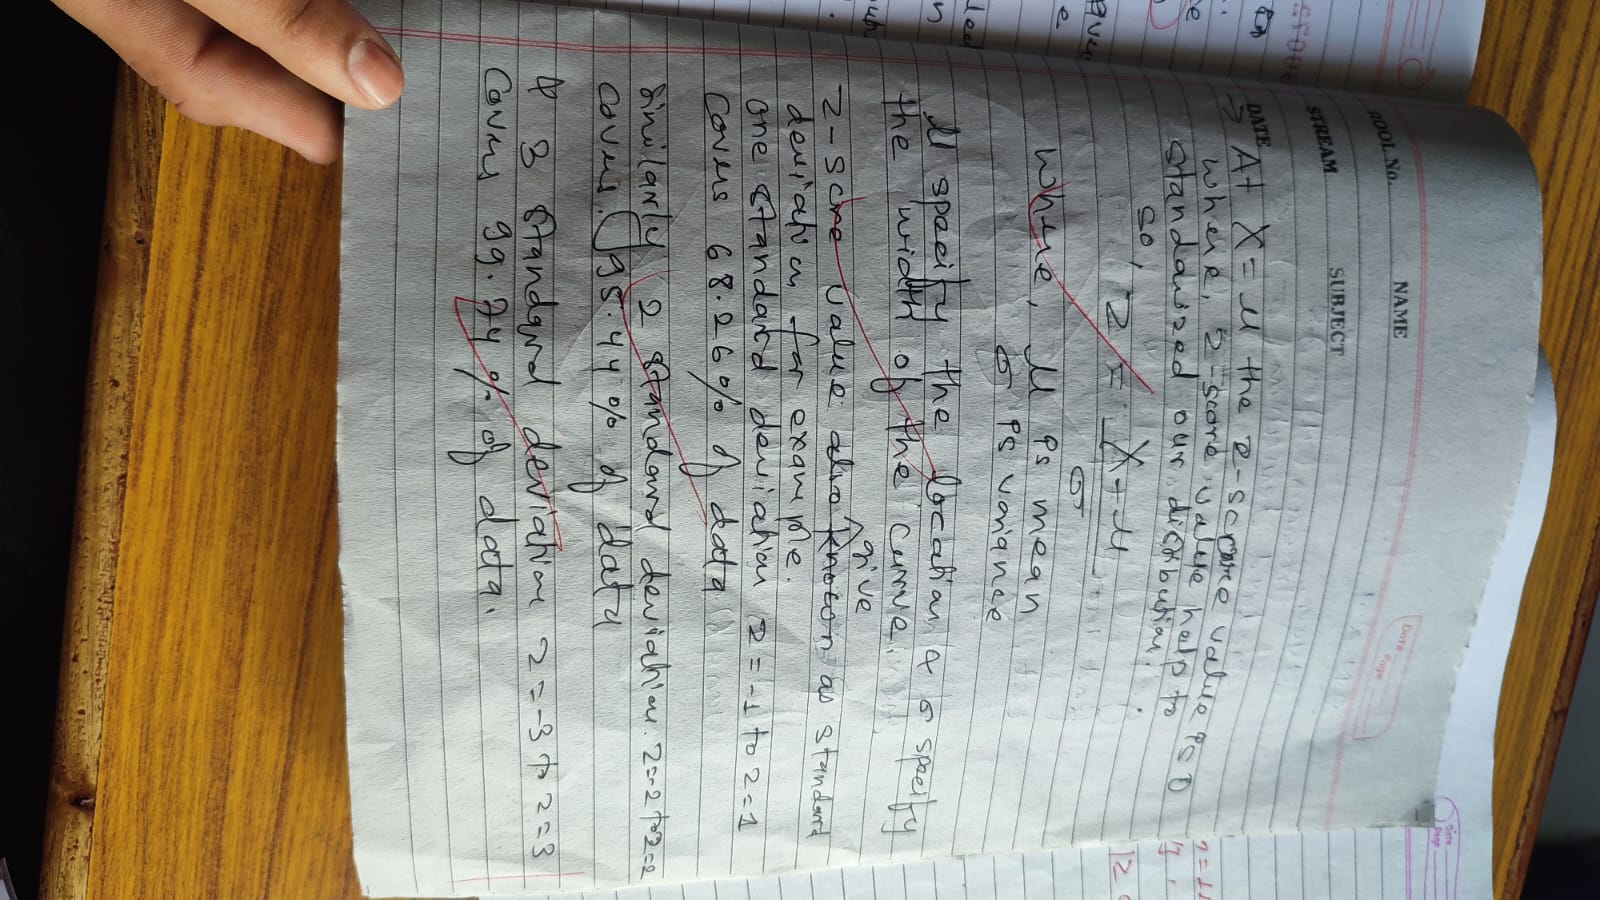 ROOL No.
NAME
STREAM
SUBJECT
DATE
Date
Page
→ At X = μ the z-score value is 0
where, z-score value help to
standawized our distribution.
so, Z = X + μ
σ
Where, μ is mean
σ is variance
μ specify the location & σ specify
the width of the curve.
give
Z-score value also known as standard
deviation for example.
one standard deviation z = -1 to z = 1
Covers 68.26% of data
Similarly 2 standard deviation. z = -2 to z = 2
covers. 95.44% of data
& 3 standard deviation z = -3 to z = 3
Covers 99.74% of data.